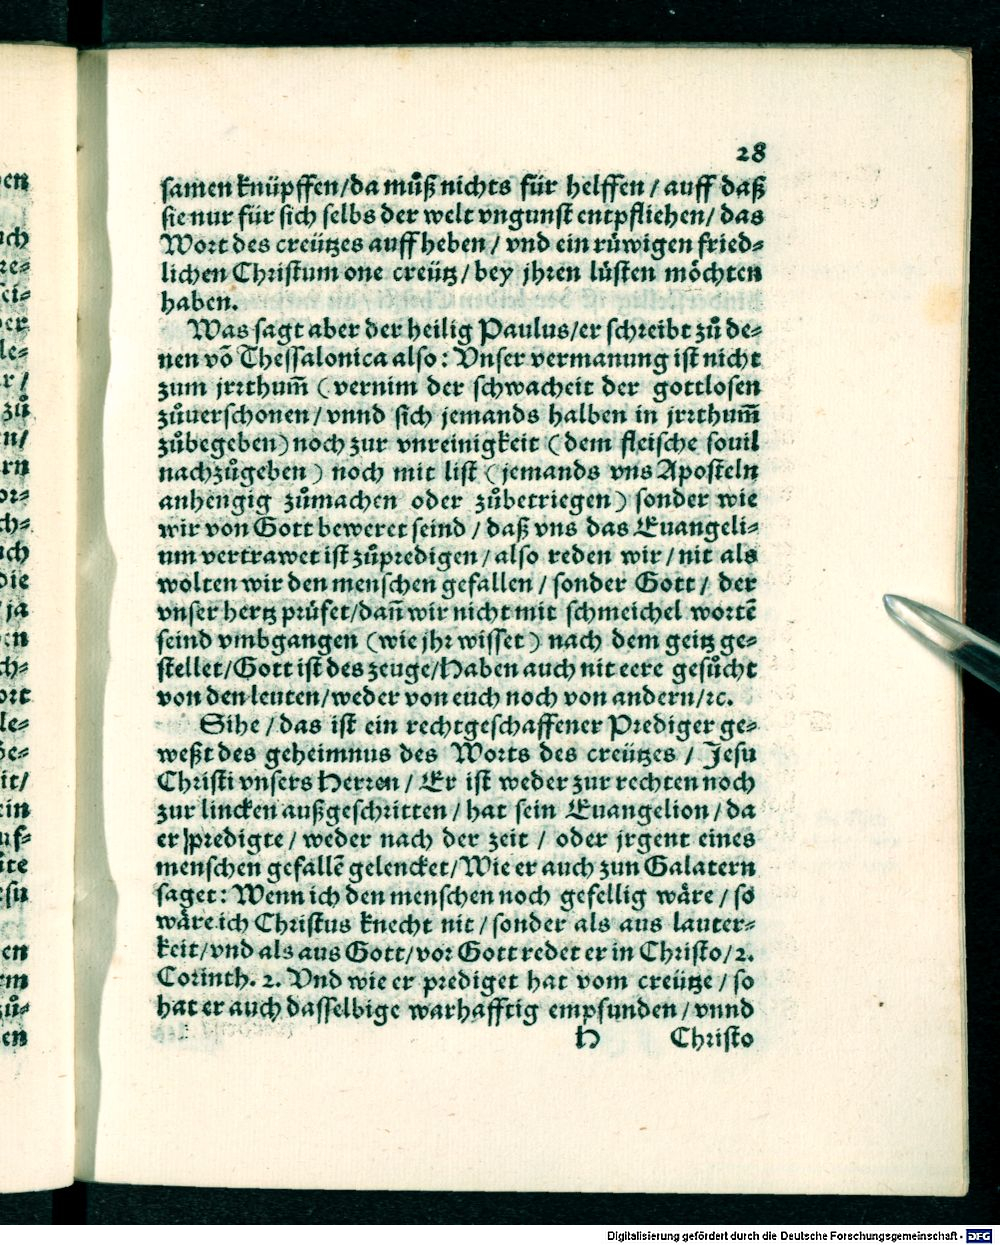 28
samen knüpffen/da muͦß nichts für helffen / auff daß
sie nur für sich selbs der welt vngunst entpfliehen/ das
Wort des creützes auff heben / vnd ein ruͤwigen fried⸗
lichen Christum one creütz/ bey jhren lüsten möchten
haben.
Was sagt aber der heilig Paulus/er schreibt zuͦ de⸗
nen võ Thessalonica also: Vnser vermanung ist nicht
zum jrrthum̃ (vernim der schwacheit der gottlosen
zuͦuerschonen/ vnnd sich jemands halben in jrrthum̃
zuͦbegeben) noch zur vnreinigkeit (dem fleische souil
nachzuͦgeben) noch mit list (jemands vns Aposteln
anhengig zuͦmachen oder zuͦbetriegen) sonder wie
wir von Gott beweret seind / daß vns das Euangeli⸗
um vertrawet ist zuͦpredigen / also reden wir / nit als
wolten wir den menschen gefallen / sonder Gott / der
vnser hertz pruͤfet/dañ wir nicht mit schmeichel wortẽ
seind vmbgangen (wie jhr wisset) nach dem geitz ge⸗
stellet/Gott ist des zeuge/Haben auch nit eere gesuͦcht
von den leuten/weder von euch noch von andern/ꝛc.
Sihe / das ist ein rechtgeschaffener Prediger ge⸗
weßt des geheimnus des Worts des creützes / Jesu
Christi vnsers Herren / Er ist weder zur rechten noch
zur lincken außgeschritten / hat sein Euangelion / da
er predigte / weder nach der zeit / oder jrgent eines
menschen gefallẽ gelencket/Wie er auch zun Galatern
saget: Wenn ich den menschen noch gefellig wäre / so
wäre ich Christus knecht nit / sonder als aus lauter⸗
keit/vnd als aus Gott/vor Gott redet er in Christo/2.
Corinth. 2. Vnd wie er prediget hat vom creütze / so
hat er auch dasselbige warhafftig empfunden / vnnd
H Christo
Digitalisierung gefördert durch die Deutsche Forschungsgemeinschaft - DFG